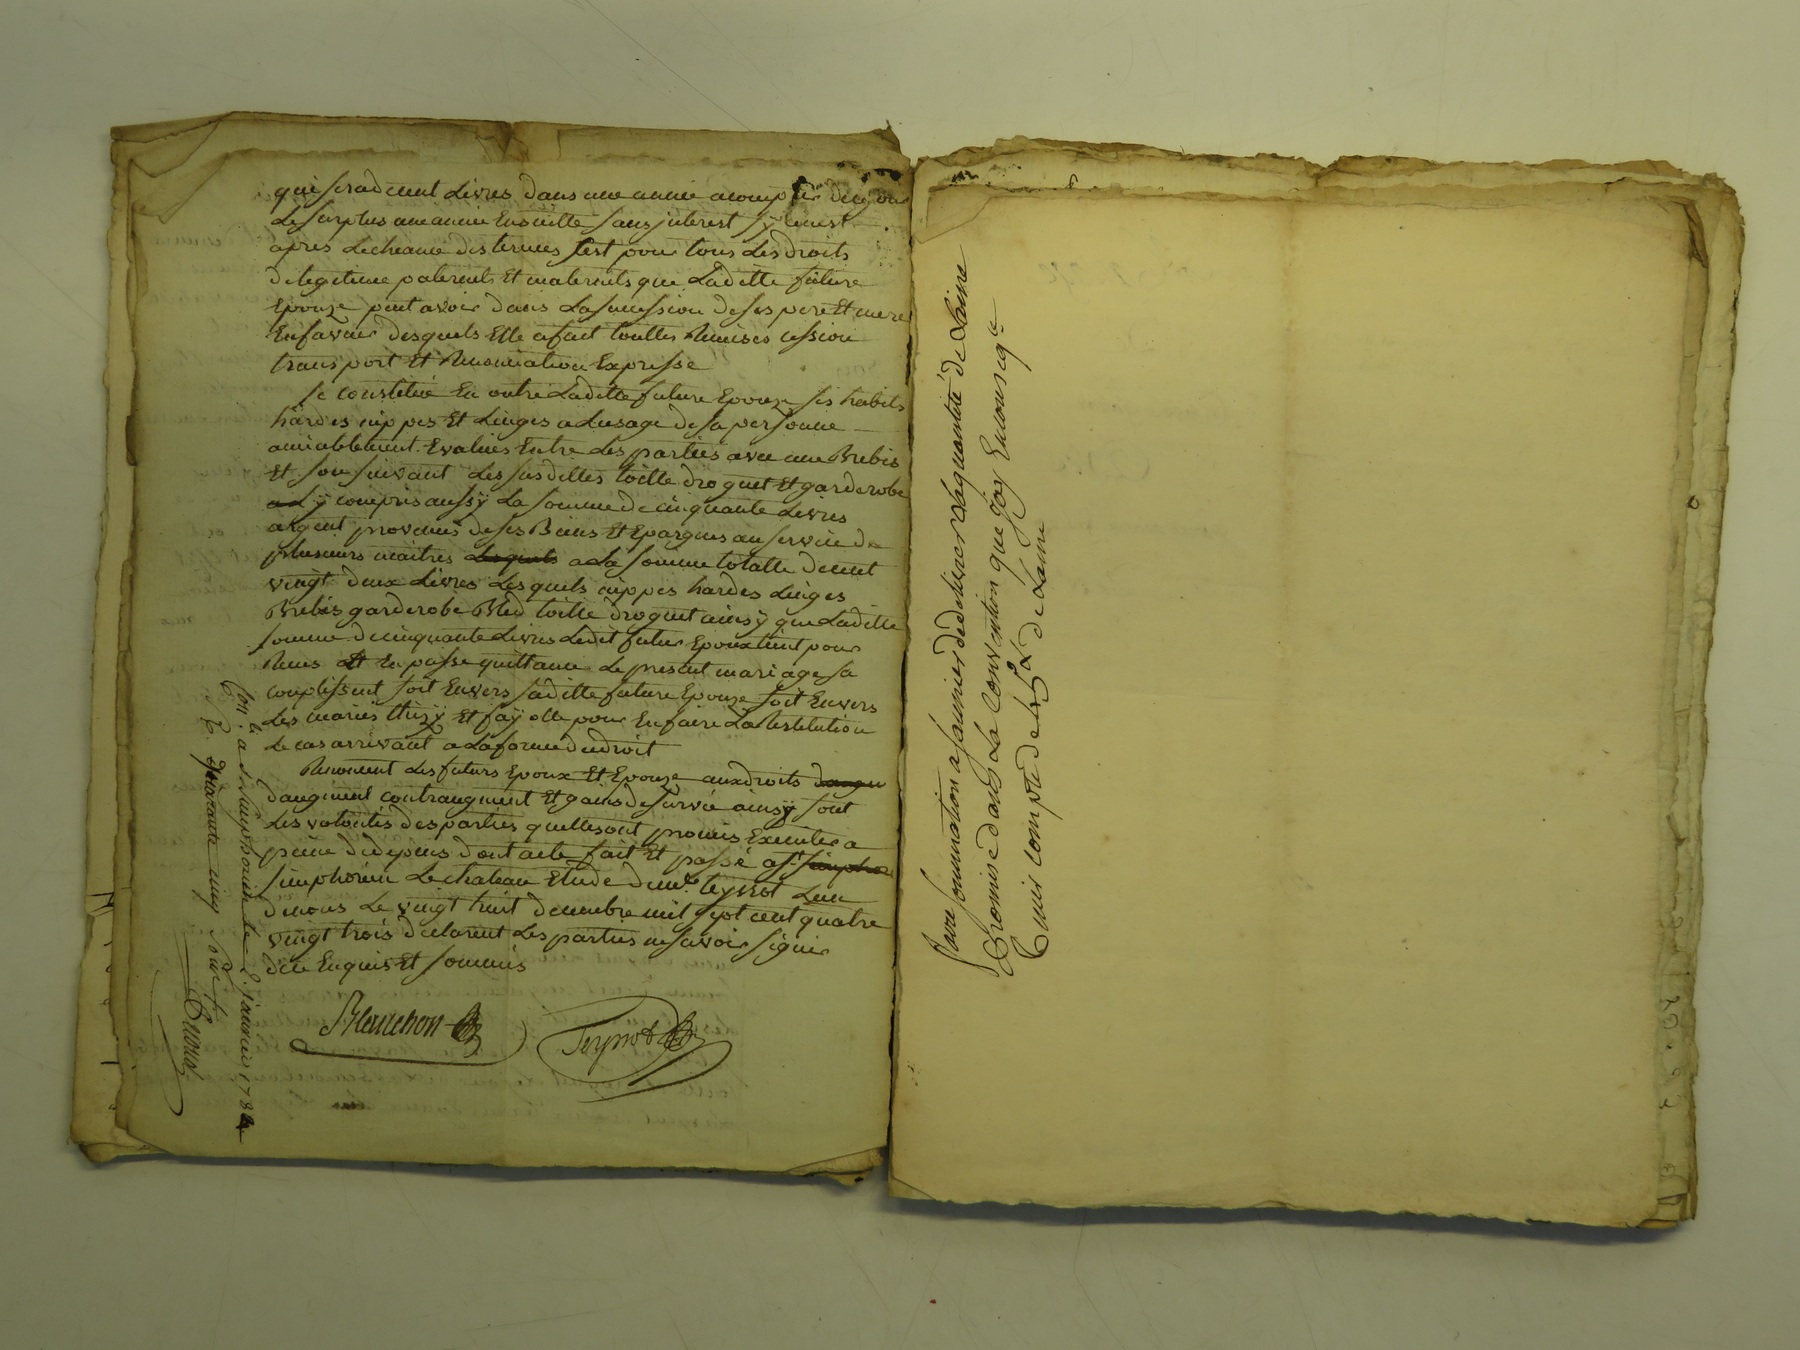 qui sera de cent Livres dans une année a compter de ce jour
Le surplus une année Ensuitte sans jnterest sy ce nest
apres Lecheance des termes Cest pour tous Les droits
de legitime paternels Et maternels que Laditte future
Epouze peut avoir dans La succession de ses pere Et mere
En faveur desquels Elle a fait touttes Remises cession
transport Et Renonciation Expresse
Se constitue En outre Laditte future Epouze ses habits
hardes nippes Et Linges a Lusage de sa personne
amiablement Evalués Entre Les parties avec une Brebis
Et son suivant Les susdittes toille droguet Et garderobe
y compris aussÿ La somme de cinquante Livres
argent provenus de ses Biens Et Epargnes au service de
plusieurs maitres Lesquels a La somme totalle de cent
vingt deux Livres Lesquels nippes hardes Linges
Brebis garderobe Bled toille droguet ainsÿ que Laditte
somme de cinquante Livres Ledit futur Epoux tient pour
Reçus Et En passe quittance Le present mariage sa
complissent soit Envers saditte future Epouze soit Envers
Les mariés thizÿ Et faÿolle pour En faire La Restitution
Le cas arrivant a La forme du droit
Renoncent Les futurs Epoux Et Epouze aux droits daugm
daugment contraugment Et gains de survie ainsÿ sont
Les volontés des parties quelles ont promis Executer a
peine de depens dont acte fait Et passé a St simpho
simphorien Le chateau Etude de me teyrot Lun
de nous Le vingt huit decembre mil sept cent quatre
vingt trois declarent Les parties ne savoir signer
de ce Enquis Et sommés
Blanchon
Teyrot
Con. lé a St Simphorien le janvier 1784
R. quarante cinq sols
faire sommation a saunier de delivrer la quantité de Laine
Promise dans La convention que jay En mon
tenir compte de de Laine